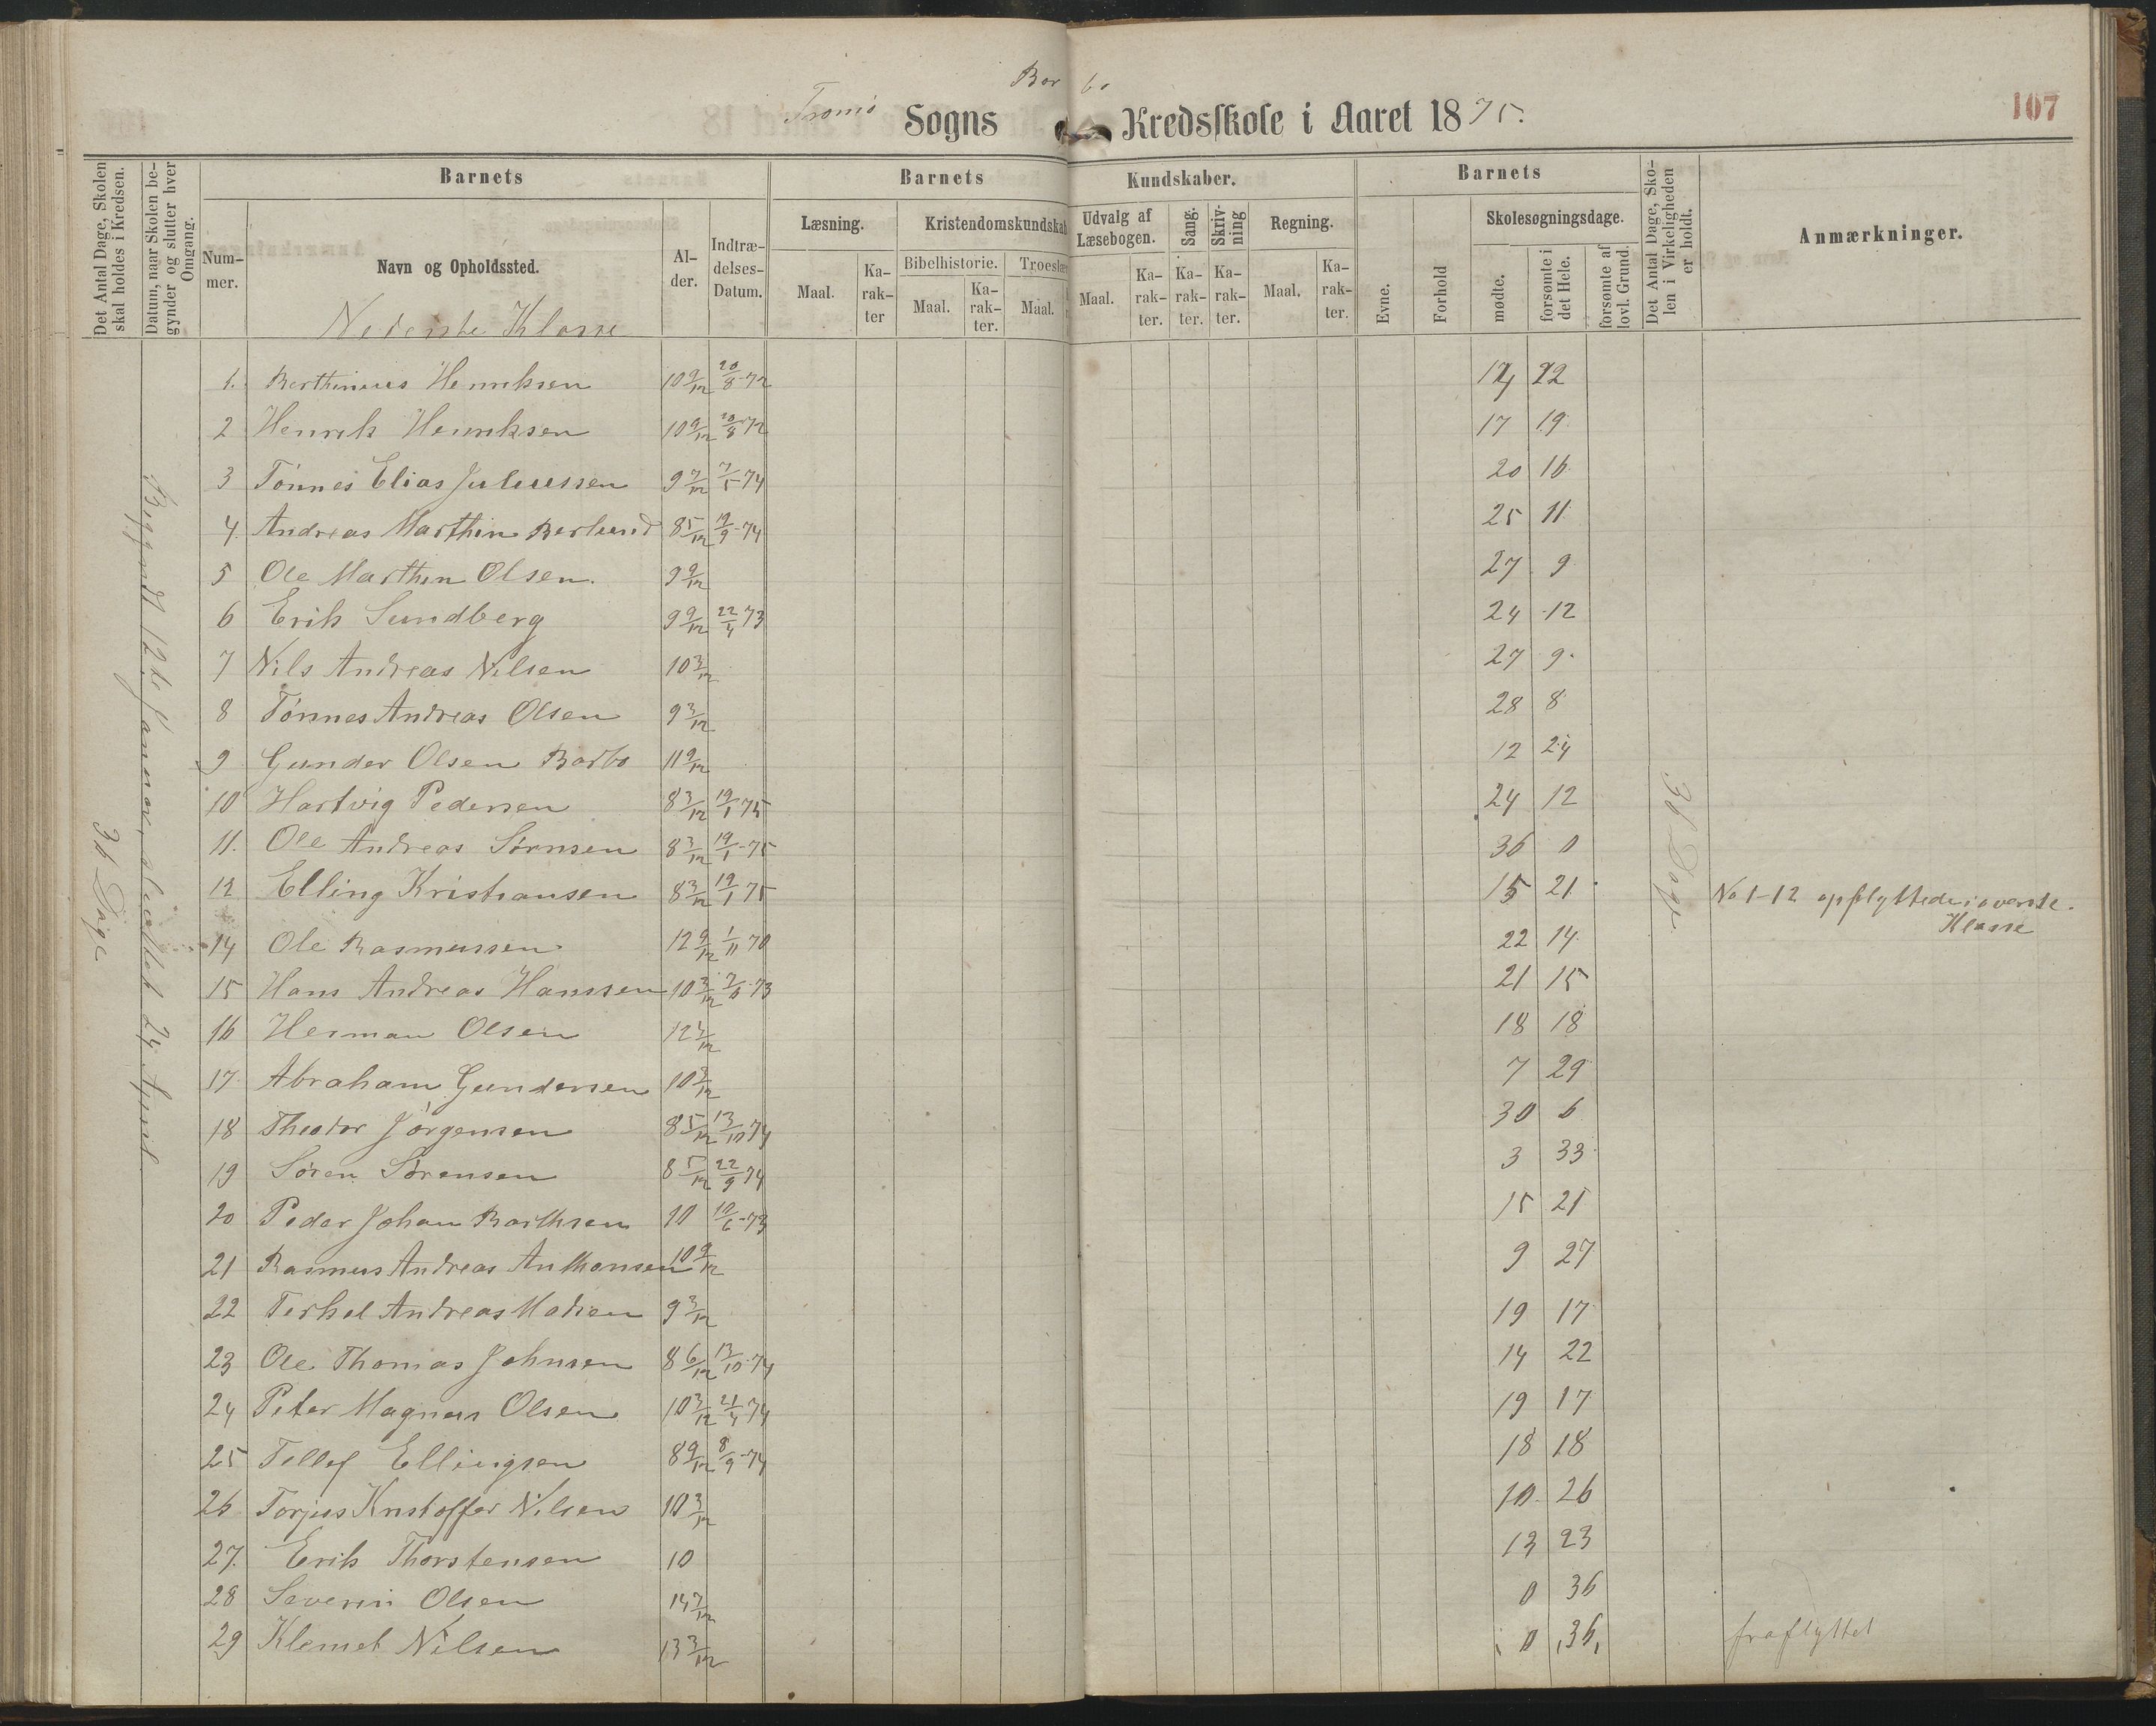 Barbo
Tromø Sogns Kredsskole i Aaret 1875.
107
Det Antal Dage, Skolen skal holdes i Kredsen.
Datum, naar Skolen begynder og slutter hver Omgang.
Barnets
Barnets
Kundskaber.
Barnets
Det Antal Dage, Skolen i Virkeligheden er holdt.
Anmærkninger.
Nummer.
Navn og Opholdssted.
Alder.
Indtrædelses-Datum.
Læsning.
Kristendomskundskab
Udvalg af Læsebogen.
Sang.
Skrivning
Regning.
Evne.
Forhold
Skolesøgningsdage.
Bibelhistorie.
Troeslær
Maal.
Karakter
Maal.
Karakter.
Maal.
Maal.
Karakter.
Karakter.
Karakter.
Maal.
Karakter.
mødte.
forsømte i det Hele.
forsømte af lovl. Grund.
Nederste Klasse
1. Berthinius Henriksen 10 9/12 20/8-72 22
2 Henrik Henriksen 10 9/12 20/8 72 17 19
3 Tønnes Elias Juliussen 9 7/12 7/5 74 20 16
4 Andreas Marthin Berlund 8 5/12 19/9-74 25 11
5 Ole Marthin Olsen. 9 9/12 27 9
6 Erik Sundberg 9 9/12 22/4 73 24 12
7 Nils Andreas Nilsen 10 3/12 27 9
8 Tønnes Andreas Olsen 9 3/12 28 8
9 Gunder Olsen Barbo 11 9/12 12 24
10 Hartvig Pedersen 8 3/12 19/1 75 24 12
11. Ole Andreas Sørnsen 8 3/12 19/1-75 36 0
12 Elling Kristiansen 8 3/12 19/1 75 15 21 No 1-12 opflyttede i øverste Klasse
14 Ole Rasmussen 12 9/12 1/11 70 22 14
15 Hans Andreas Hanssen 10 3/12 73 21 15
16 Herman Olsen 12 3/12 18 18
17 Abraham Gundersen 10 3/12 7 29
18 Theodor Jørgensen 8 5/12 13/10 74 30 6
19 Søren Sørensen 8 5/12 22/9 74 3 33
20 Peder Johan Barthsen 10 10/6-73 15 21
21 Rasmus Andreas Anthonsen 10 9/12 9 27
22 Terkel Andreas Madsen 9 3/12 19 17
23 Ole Thomas Johnsen 8 6/12 13/10-74 14 22
24 Peter Magnus Olsen 10 3/12 21/4 74 19 17
25 Tellef Ellingsen 8 9/12 8/9-74 18 18
26 Torjus Kristoffer Nilsen 10 3/12 10 26
27. Erik Thorstensen 10 13 23
28 Severin Olsen 0 36
29 Klemet Nilsen 13 3/12 0 36 fraflyttet
36 Dage
Begyndt 12te Januar, sluttet 24 April
36 Dage